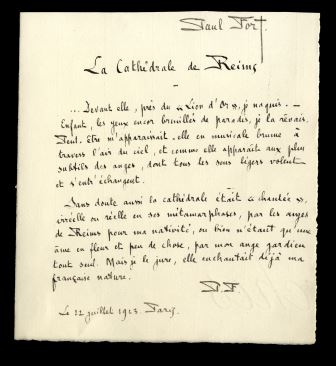 Paul Fort
La Cathédrale de Reims
... Devant elle, près du « Lion d'Or », je naquis. —
Enfant, les yeux encor brouillés de paradis, je la rêvais.
Peut-être m'apparaissait-elle en musicale brume à
travers l'air du ciel, et comme elle apparaît aux plus
subtils des anges, dont tous les sons légers volent
et s'entr'échangent.
Sans doute aussi la cathédrale était « chantée »,
irréelle ou réelle en ses métamorphoses, par les anges
de Reims pour ma nativité, ou bien n'étant qu'une
âme en fleur et peu de chose, par mon ange gardien
tout seul. Mais je le jure, elle enchantait déjà ma
française nature.
P F
Le 22 juillet 1923. Paris.